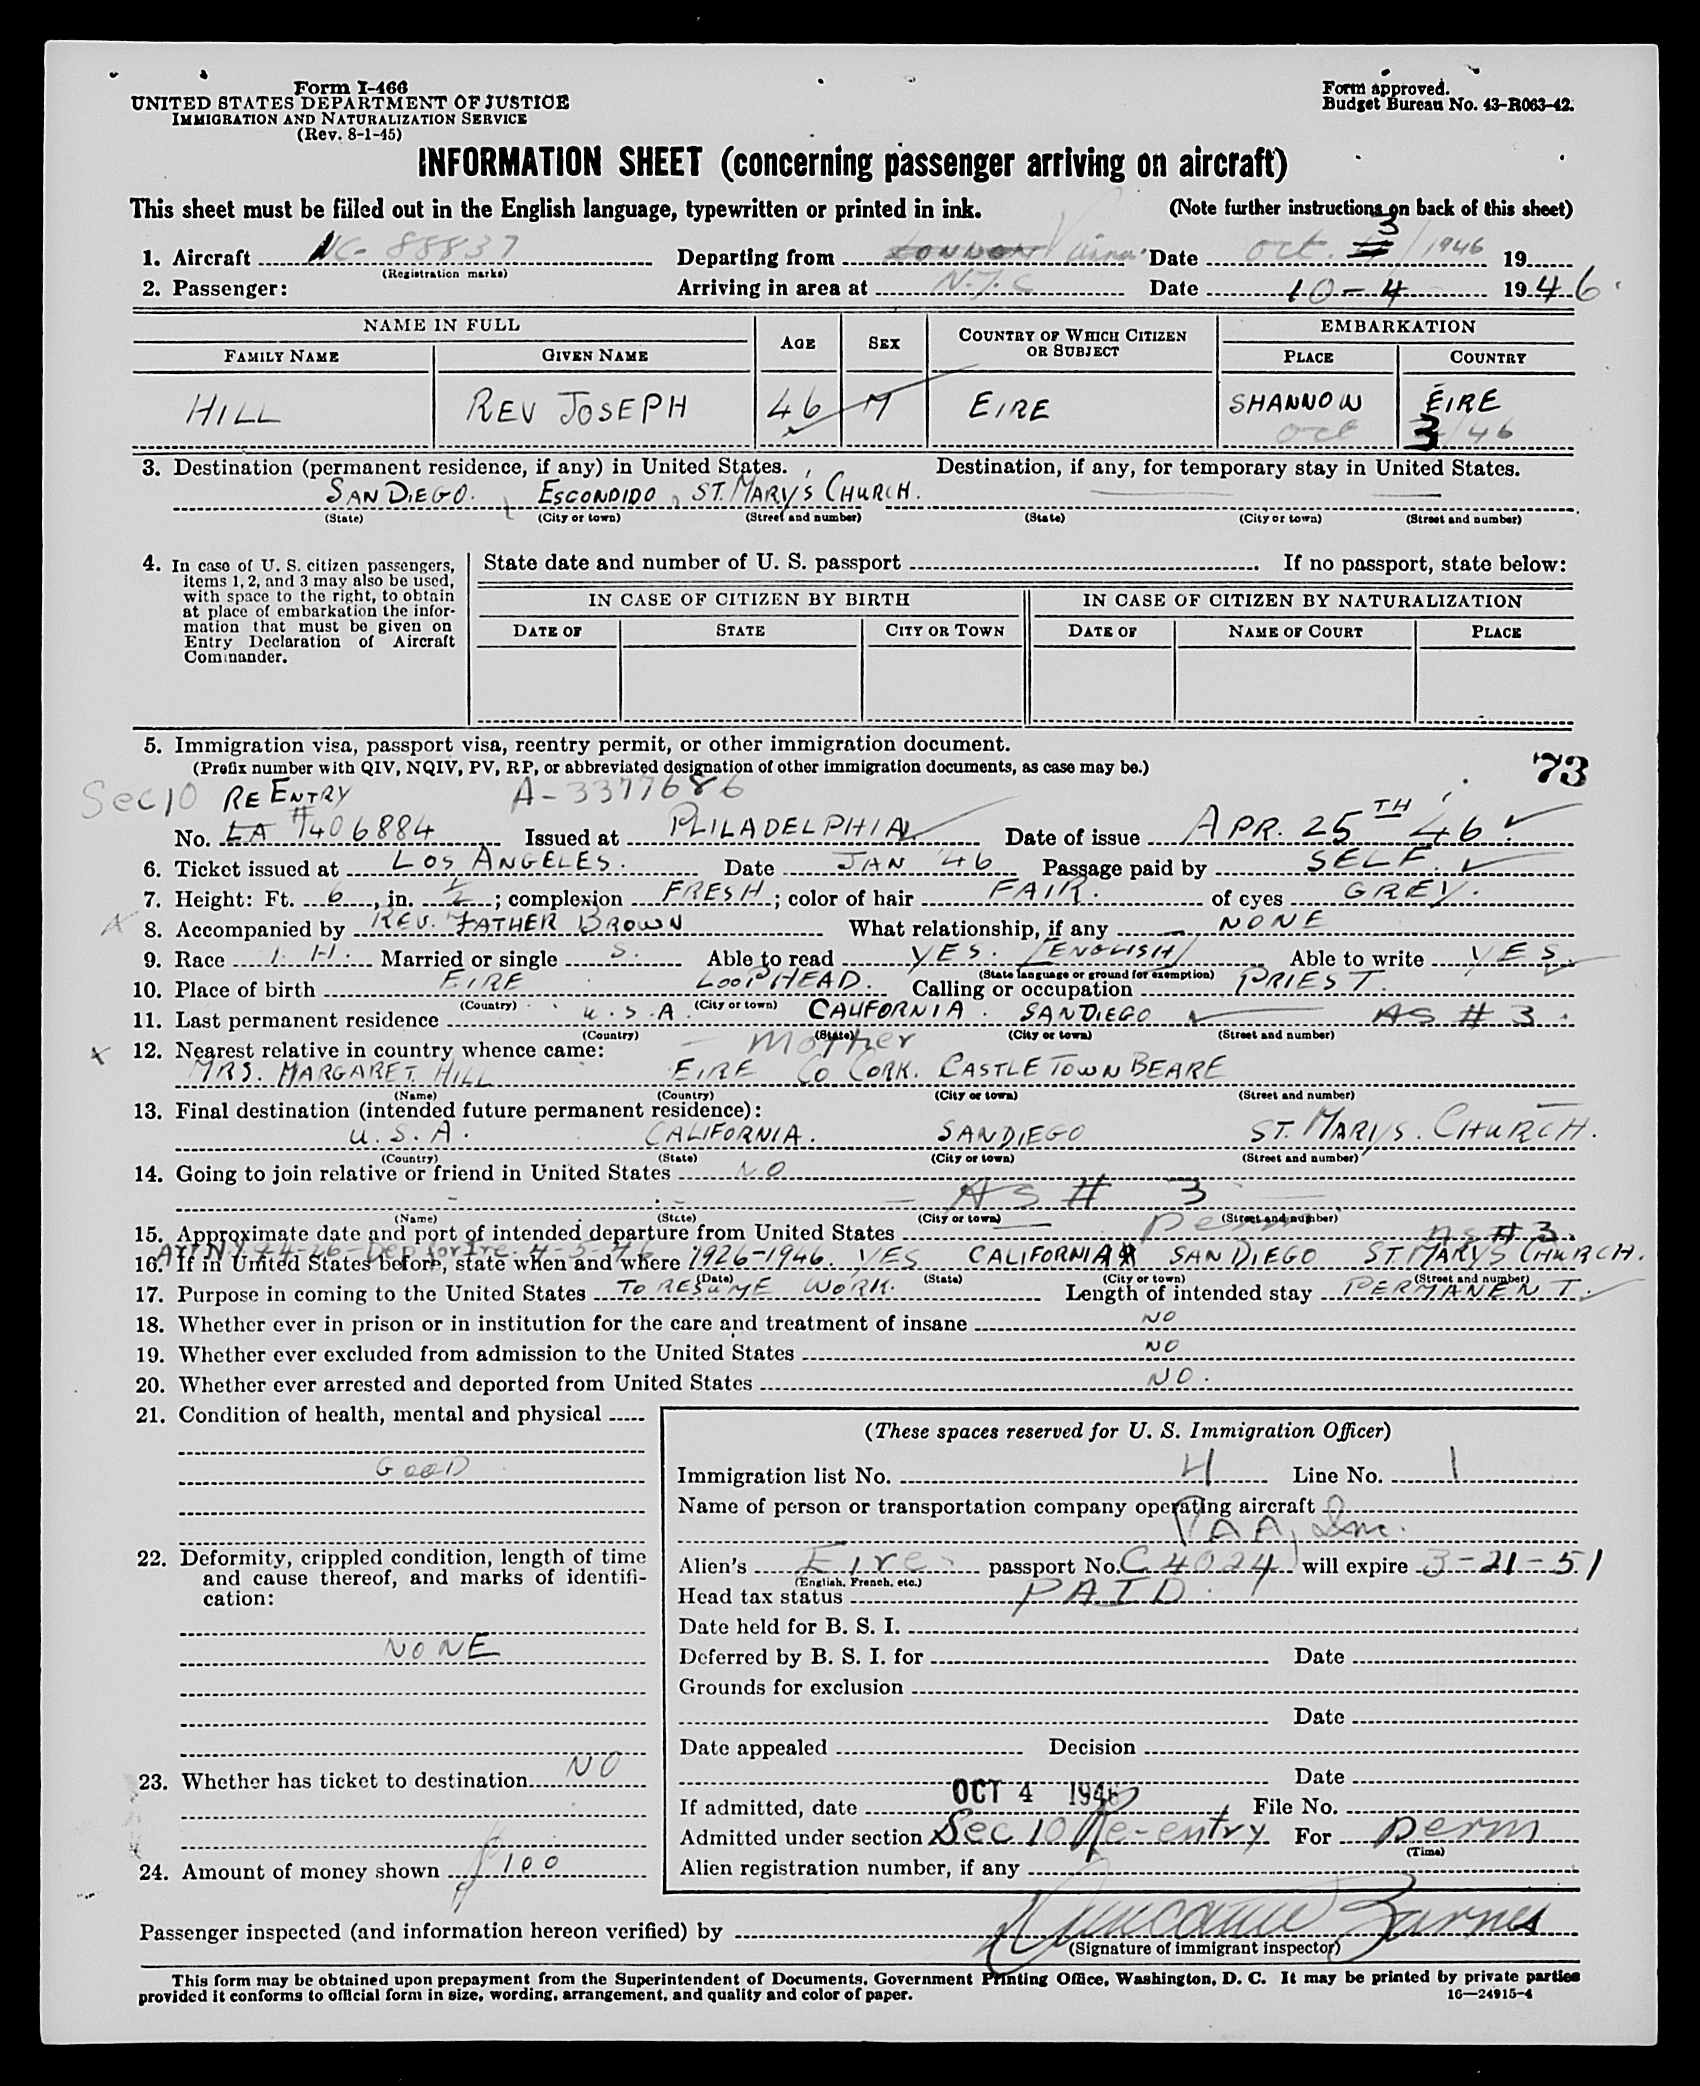 Form I-466
UNITED STATES DEPARTMENT OF JUSTICE
IMMIGRATION AND NATURALIZATION SERVICE
(Rev. 8-1-45)
Form approved.
Budget Bureau No. 43-R063-42.
INFORMATION SHEET (concerning passenger arriving on aircraft)
This sheet must be filled out in the English language, typewritten or printed in ink. (Note further instructions on back of this sheet)
1. Aircraft NC-88837 Departing from LONDON Vienna Date Oct. 3/1946 19
(Registration marks)
2. Passenger: Arriving in area at N.Y.C Date 10-4 1946
NAME IN FULL AGE SEX COUNTRY OF WHICH CITIZEN OR SUBJECT EMBARKATION
FAMILY NAME GIVEN NAME PLACE COUNTRY
HILL REV JOSEPH 46 M EIRE SHANNON EIRE
Oct 3/46
3. Destination (permanent residence, if any) in United States. Destination, if any, for temporary stay in United States.
SAN DIEGO. ESCONDIDO, ST. MARY'S CHURCH.
(State) (City or town) (Street and number) (State) (City or town) (Street and number)
4. In case of U. S. citizen passengers, items 1, 2, and 3 may also be used, with space to the right, to obtain at place of embarkation the information that must be given on Entry Declaration of Aircraft Commander.
State date and number of U. S. passport If no passport, state below:
IN CASE OF CITIZEN BY BIRTH IN CASE OF CITIZEN BY NATURALIZATION
DATE OF STATE CITY OR TOWN DATE OF NAME OF COURT PLACE
5. Immigration visa, passport visa, reentry permit, or other immigration document.
(Prefix number with QIV, NQIV, PV, RP, or abbreviated designation of other immigration documents, as case may be.)
73
Sec 10 RE ENTRY A-3377686
No. LA #1406884 Issued at PHILADELPHIA Date of issue APR. 25TH '46
6. Ticket issued at LOS ANGELES. Date JAN '46 Passage paid by SELF.
7. Height: Ft. 6, in. 1/2; complexion FRESH; color of hair FAIR. of eyes GREY.
8. Accompanied by REV. FATHER BROWN What relationship, if any NONE
9. Race I H. Married or single S. Able to read YES. /ENGLISH/ Able to write YES
(State language or ground for exemption)
10. Place of birth EIRE LOOPHEAD. Calling or occupation PRIEST.
(Country) (City or town)
11. Last permanent residence U.S.A. CALIFORNIA. SAN DIEGO AS # 3.
(Country) (State) (City or town) (Street and number)
12. Nearest relative in country whence came: Mother
MRS. MARGARET HILL EIRE CO CORK. CASTLETOWN BEARE
(Name) (Country) (City or town) (Street and number)
13. Final destination (intended future permanent residence):
U.S.A. CALIFORNIA. SAN DIEGO ST. MARYS. CHURCH.
(Country) (State) (City or town) (Street and number)
14. Going to join relative or friend in United States NO
AS # 3
(Name) (State) (City or town) (Street and number)
15. Approximate date and port of intended departure from United States Perm AS # 3.
16. If in United States before, state when and where 1926-1946. YES CALIFORNIA SAN DIEGO ST. MARYS CHURCH.
(Date) (State) (City or town) (Street and number)
17. Purpose in coming to the United States TO RESUME WORK. Length of intended stay PERMANENT.
18. Whether ever in prison or in institution for the care and treatment of insane NO
19. Whether ever excluded from admission to the United States NO
20. Whether ever arrested and deported from United States NO.
21. Condition of health, mental and physical
GOOD
22. Deformity, crippled condition, length of time and cause thereof, and marks of identification:
NONE
23. Whether has ticket to destination NO
24. Amount of money shown $100
(These spaces reserved for U. S. Immigration Officer)
Immigration list No. 4 Line No. 1
Name of person or transportation company operating aircraft
PAA, Inc.
Alien's Eire passport No. C 4024 will expire 3-21-51
(English, French, etc.)
Head tax status PAID.
Date held for B. S. I.
Deferred by B. S. I. for Date
Grounds for exclusion
Date
Date appealed Decision
Date
If admitted, date OCT 4 1946 File No.
Admitted under section Sec 10 Re-entry For perm
(Time)
Alien registration number, if any
Passenger inspected (and information hereon verified) by
(Signature of immigrant inspector)
This form may be obtained upon prepayment from the Superintendent of Documents, Government Printing Office, Washington, D. C. It may be printed by private parties
provided it conforms to official form in size, wording, arrangement, and quality and color of paper. 16—24915-4